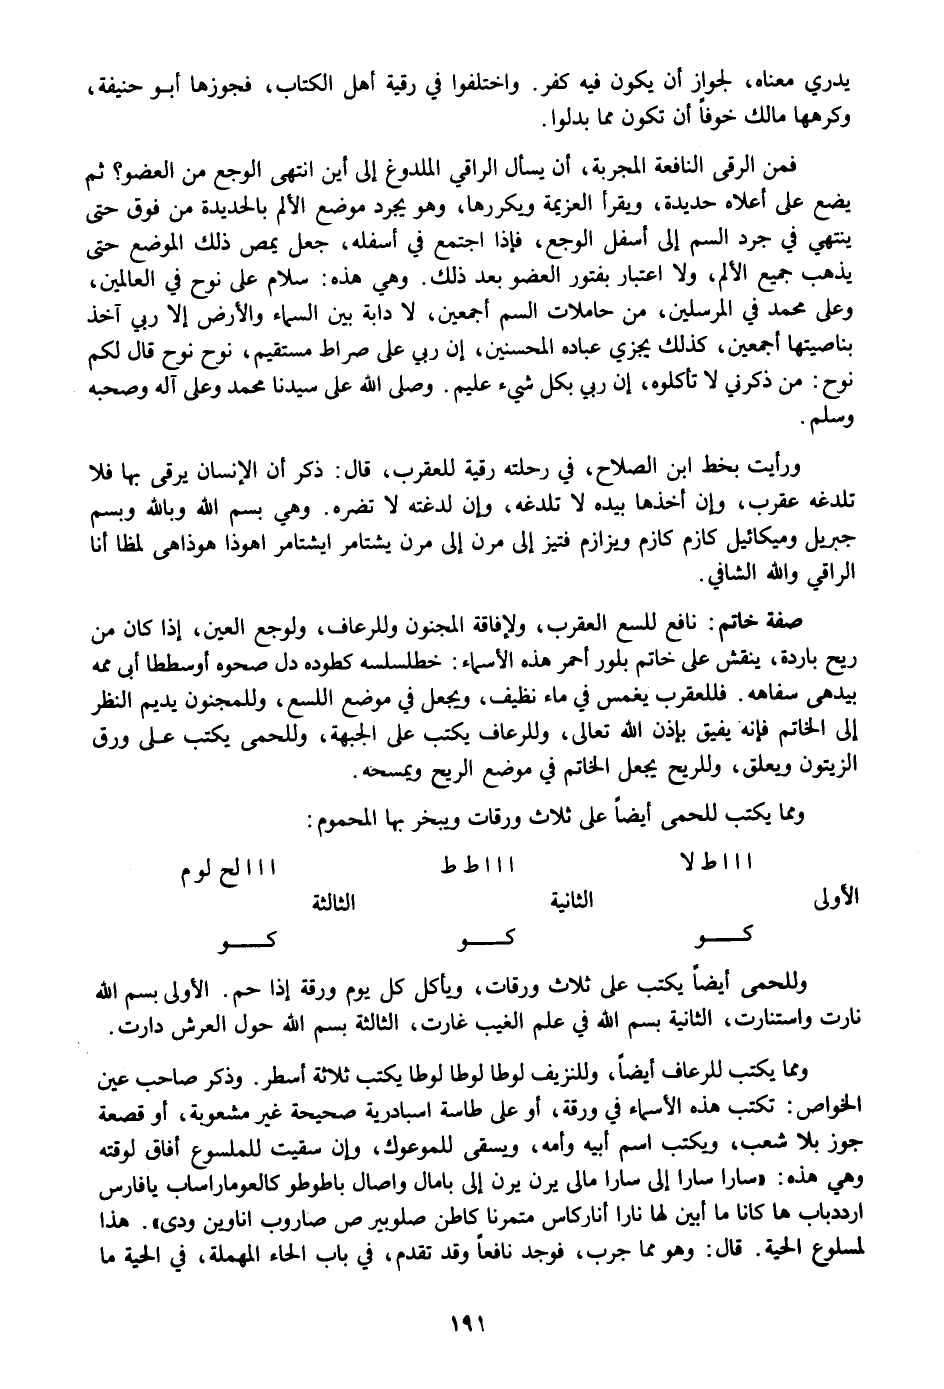 يدري معناه، لجواز أن يكون فيه كفر. واختلفوا في رقية أهل الكتاب، فجوزها أبو حنيفة،
وكرهها مالك خوفاً أن تكون مما بدلوا.
فمن الرقى النافعة المجربة، أن يسأل الراقي الملدوغ إلى أين انتهى الوجع من العضو؟ ثم
يضع على أعلاه حديدة، ويقرأ العزيمة ويكررها، وهو يجرد موضع الألم بالحديدة من فوق حتى
ينتهي في جرد السم إلى أسفل الوجع، فإذا اجتمع في أسفله، جعل يمص ذلك الموضع حتى
يذهب جميع الألم، ولا اعتبار بفتور العضو بعد ذلك. وهي هذه: سلام على نوح في العالمين،
وعلى محمد في المرسلين، من حاملات السم أجمعين، لا دابة بين السماء والأرض إلا ربي آخذ
بناصيتها أجمعين، كذلك يجزي عباده المحسنين، إن ربي على صراط مستقيم، نوح نوح قال لكم
نوح: من ذكرني لا تأكلوه، إن ربي بكل شيء عليم. وصلى الله على سيدنا محمد وعلى آله وصحبه
وسلم.
ورأيت بخط ابن الصلاح، في رحلته رقية للعقرب، قال: ذكر أن الإنسان يرقى بها فلا
تلدغه عقرب، وإن أخذها بيده لا تلدغه، وإن لدغته لا تضره. وهي بسم الله وبالله وبسم
جبريل وميكائيل كازم كازم ويزازم فتيز إلى مرن إلى مرن يشتامر ايشتامر اهوذا هوذاهى لمظا أنا
الراقي والله الشافي.
صفة خاتم: نافع للسع العقرب، ولإفاقة المجنون وللرعاف، ولوجع العين، إذا كان من
ريح باردة، ينقش على خاتم بلور أحمر هذه الأسماء: خطلسلسه كطوده دل صحوه أوسططا أبى ممه
بيدهى سفاهه. فللعقرب يغمس في ماء نظيف، ويجعل في موضع اللسع، وللمجنون يديم النظر
إلى الخاتم فإنه يفيق بإذن الله تعالى، وللرعاف يكتب على الجبهة، وللحمى يكتب على ورق
الزيتون ويعلق، وللريح يجعل الخاتم في موضع الريح ويمسحه.
ومما يكتب للحمى أيضاً على ثلاث ورقات ويبخر بها المحموم:
ا ا ا ط لا ا ا ا ط ط ا ا ا لح لوم
الأولى الثانية الثالثة
كـــو كـــو كـــو
وللحمى أيضاً يكتب على ثلاث ورقات، ويأكل كل يوم ورقة إذا حم. الأولى بسم الله
نارت واستنارت، الثانية بسم الله في علم الغيب غارت، الثالثة بسم الله حول العرش دارت.
ومما يكتب للرعاف أيضاً، وللنزيف لوطا لوطا لوطا يكتب ثلاثة أسطر. وذكر صاحب عين
الخواص: تكتب هذه الأسماء في ورقة، أو على طاسة اسبادرية صحيحة غير مشعوبة، أو قصعة
جوز بلا شعب، ويكتب اسم أبيه وأمه، ويسقى للموعوك، وإن سقيت للملسوع أفاق لوقته
وهي هذه: «سارا سارا إلى سارا مالى يرن يرن إلى بامال واصال باطوطو كالعوماراساب يافارس
ارددباب ها كانا ما أبين لها نارا أناركاس متمرنا كاطن صلوبير ص صاروب اناوين ودى». هذا
لمسلوع الحية. قال: وهو مما جرب، فوجد نافعاً وقد تقدم، في باب الحاء المهملة، في الحية ما
١٩١